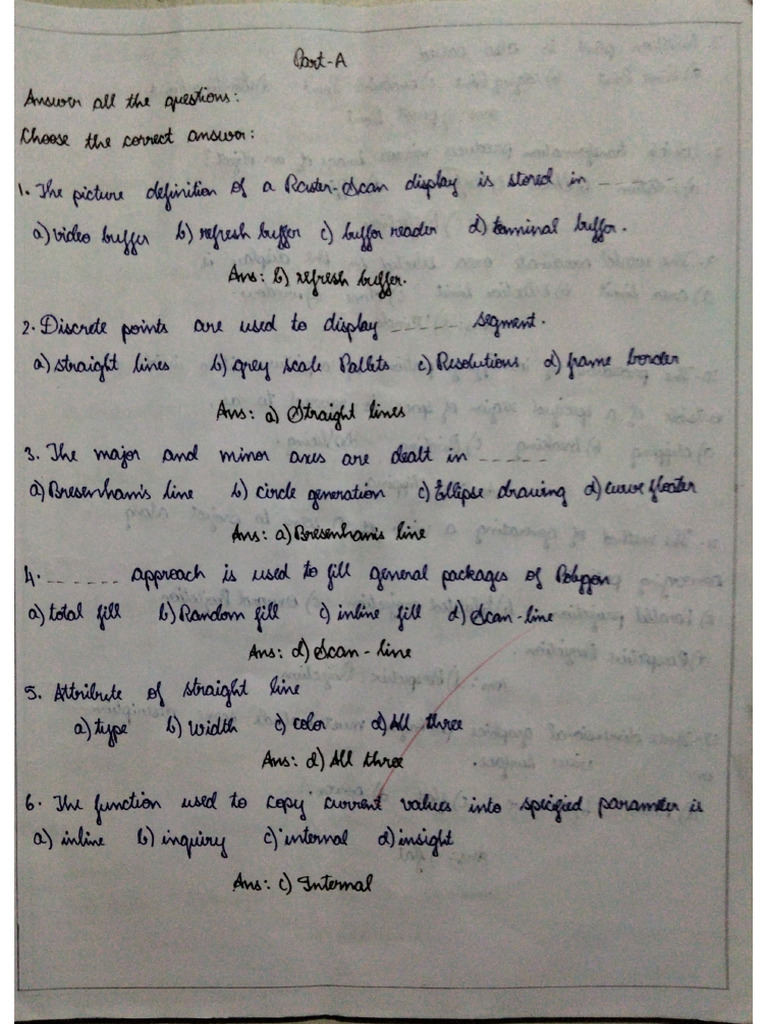 Part-A
Answer all the questions:
Choose the correct answer:
1. The picture definition of a Raster-Scan display is stored in _ _ _ _ _
a) video buffer b) refresh buffer c) buffer reader d) terminal buffer.
Ans: b) refresh buffer.
2. Discrete points are used to display _ _ _ _ _ segment.
a) straight lines b) grey scale Pallets c) Resolutions d) frame border
Ans: a) Straight lines
3. The major and minor axes are dealt in _ _ _ _ _
a) Bresenham's line b) circle generation c) Ellipse drawing d) curve floater
Ans: a) Bresenham's line
4. _ _ _ _ _ approach is used to fill general packages of Polygon
a) total fill b) Random fill c) inline fill d) Scan-line
Ans: d) Scan-line
5. Attribute of straight line
a) type b) width c) color d) All three
Ans: d) All three
6. The function used to copy current values into specified parameter is
a) inline b) inquiry c) internal d) insight
Ans: c) Internal